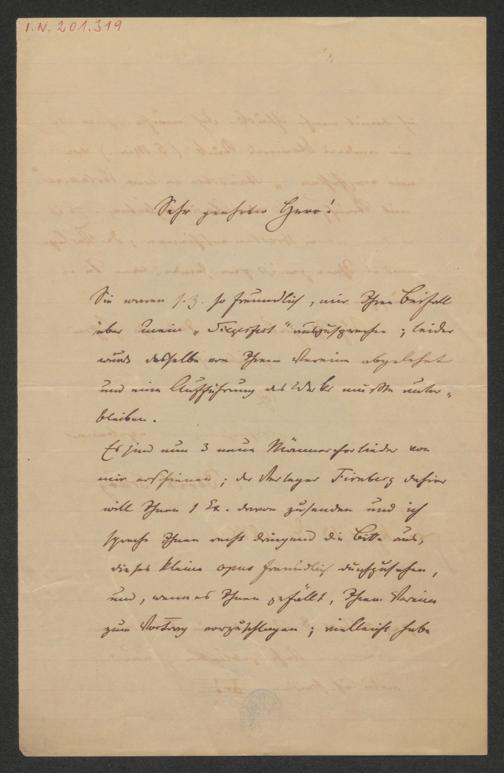 I.N. 201.319
Sehr geehrter Herr!
Sie waren s. Z. so freundlich, mir Ihren Beifall
über mein „Siegesfest“ auszusprechen; leider
wurde dasselbe von Ihrem Vereine abgelehnt
und eine Aufführung des Werkes mußte unter-
bleiben.
Es sind nun 3 neue Männerchorlieder von
mir erschienen; der Verleger Firnberg dahier
will Ihnen 1 Ex. davon zusenden und ich
spreche Ihnen recht dringend die Bitte aus,
dieses kleine opus freundlich durchzusehen,
und, wenn es Ihnen gefällt, Ihrem Vereine
zum Vortrag vorzuschlagen; vielleicht habe